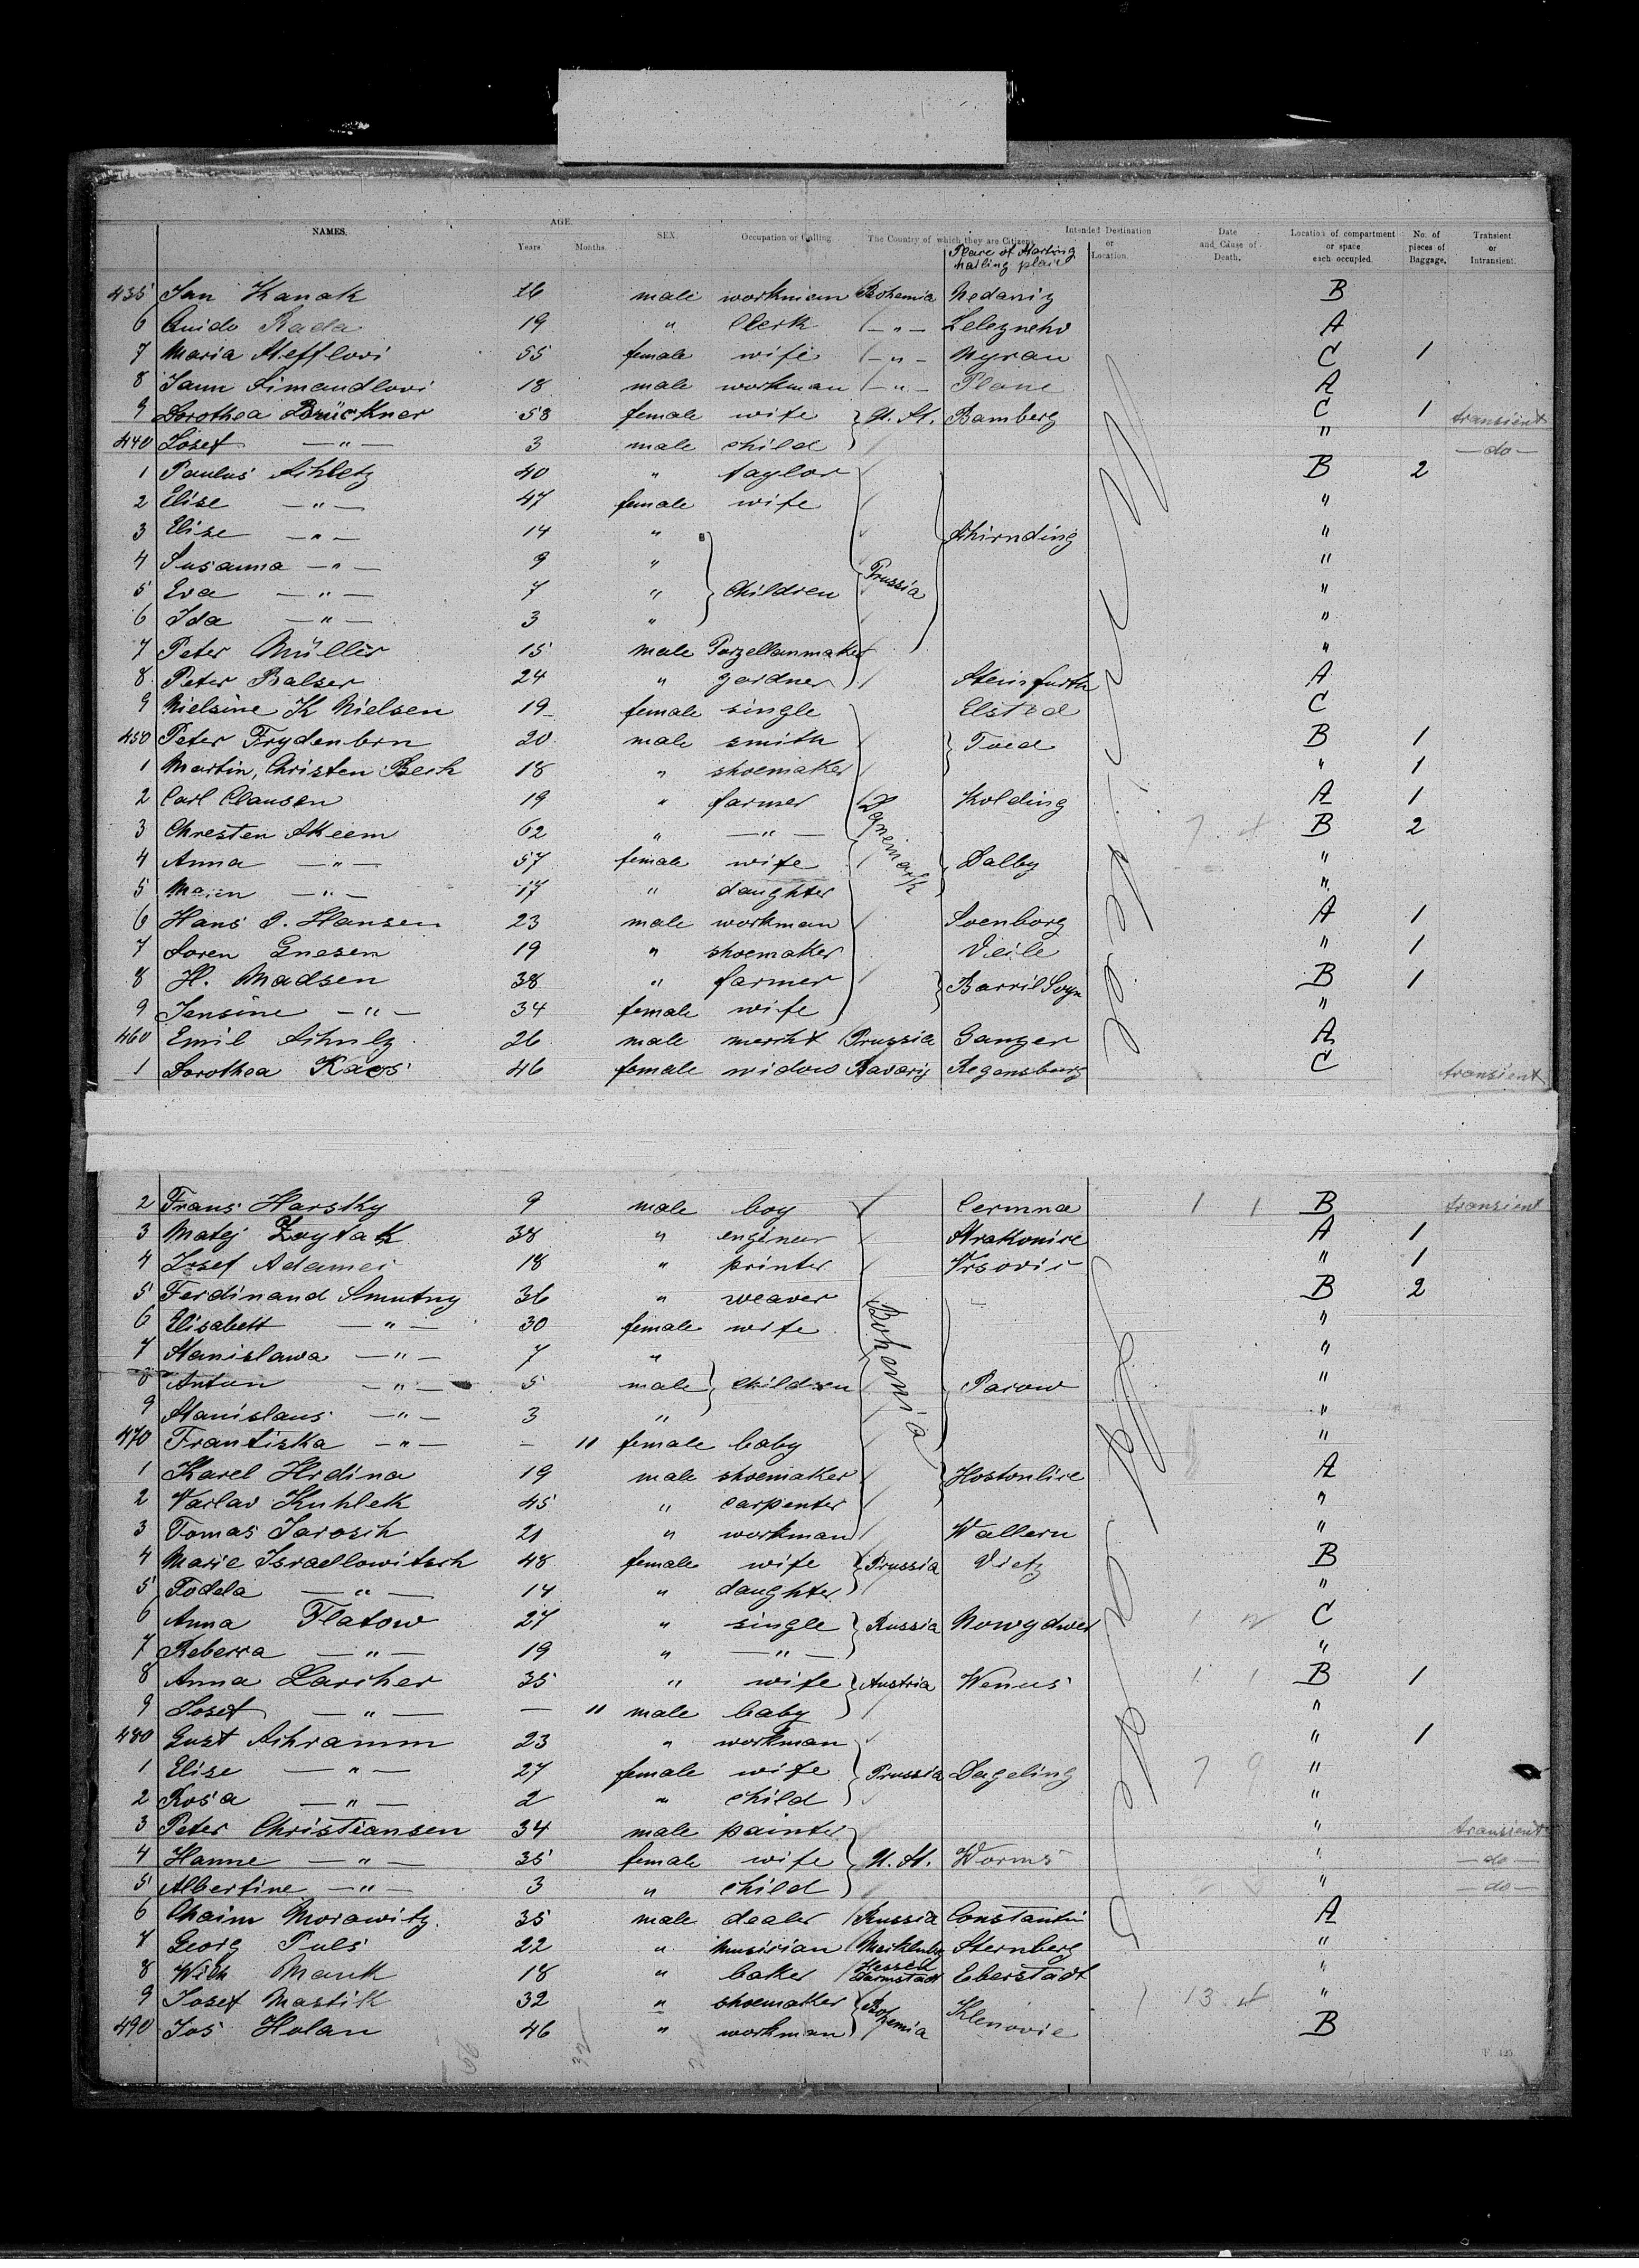 NAMES. AGE. Years. Months. SEX. Occupation or Calling The Country of which they are Citizens. Intended Destination or Location. Date and Cause of Death. Location of compartment or space each occupied. No. of pieces of Baggage. Transient or Intransient.
Place of Starting
hailing place
435 Jan Kanak 26 male workman Bohemia B
6 Guido Rada 19 " Clerk — " — A
7 Maria Stefflovi 55 female wife — " — Nyran C 1
8 Jann Simandlovi 18 male workman — " — Plane A
9 Dorothea Brückner 58 female wife U. St. Bamberg C 1 transient
440 Josef — " — 3 male child " — do —
1 Paulus Schletz 40 " taylor B 2
2 Elise — " — 47 female wife "
3 Elise — " — 14 " Schirnding "
4 Susanna — " — 9 " Prussia "
5 Eva — " — 7 " Children "
6 Ida — " — 3 " "
7 Peter Müller 15 male Porzellanmaker "
8 Peter Balser 24 " gardner Steinfurth A
9 Nielsine K Nielsen 19 female single Elsted C
450 Peter Frydenbrn 20 male smith B 1
1 Martin, Christen Bech 18 " shoemaker " 1
2 Carl Clausen 19 " farmer Danemark Kolding A 1
3 Chresten Skeem 62 " — " — B 2
4 Anna — " — 57 female wife Dalby "
5 Maren — " — 17 " daughter "
6 Hans J. Hansen 23 male workman Svenborg A 1
7 Soren Gnesen 19 " shoemaker Veile " 1
8 H. Madsen 38 " farmer Barril Sogn B 1
9 Jensine — " — 34 female wife "
460 Emil Schulz 26 male mercht Prussia Ganzer A
1 Dorothea Kaes 46 female widow Bavaria Regensburg C transient
2 Frans Harsky 9 male boy Cermna 1 1 B transient
3 Matej Zoytak 38 " engineur Strakonice A 1
4 Josef Adamec 18 " printer Vrsovic " 1
5 Ferdinand Smutny 36 " weaver B 2
6 Elisabett — " — 30 female wife Bohemia "
7 Stanislawa — " — 7 " "
8 Anton — " — 5 male children Pacow "
9 Stanislaus — " — 3 " "
470 Frantiska — " — — 11 female baby "
1 Karel Hrdina 19 male shoemaker Hostonlice A
2 Vaclav Kuhlek 45 " carpenter "
3 Tomas Jarosch 21 " workman Wallern "
4 Marie Israellowitsch 48 female wife Prussia Vietz B
5 Todela — " — 14 " daughter "
6 Anna Flatow 27 " single Russia Nowydwer C
7 Rebecca — " — 19 " — " — "
8 Anna Larcher 35 " wife Austria Wenus 1 1 B 1
9 Josef — " — — 11 male baby "
480 Gust Schramm 23 " workman " 1
1 Elise — " — 27 female wife Prussia Dageling 7 9 "
2 Rosa — " — 2 " child "
3 Peter Christiansen 34 male painter " transient
4 Hanne — " — 35 female wife U. St. Worms " — do —
5 Albertine — " — 3 " child " — do —
6 Chaim Morawitz 35 male dealer Russia Constantin A
7 Georg Puls 22 " musician Mecklenbg Sternberg "
8 Wilh Mark 18 " baker Hessen Darmstadt Eberstadt "
9 Josef Mastik 32 " shoemaker Bohemia Klenovic 13 "
490 Jos Holan 46 " workman B
F. 125